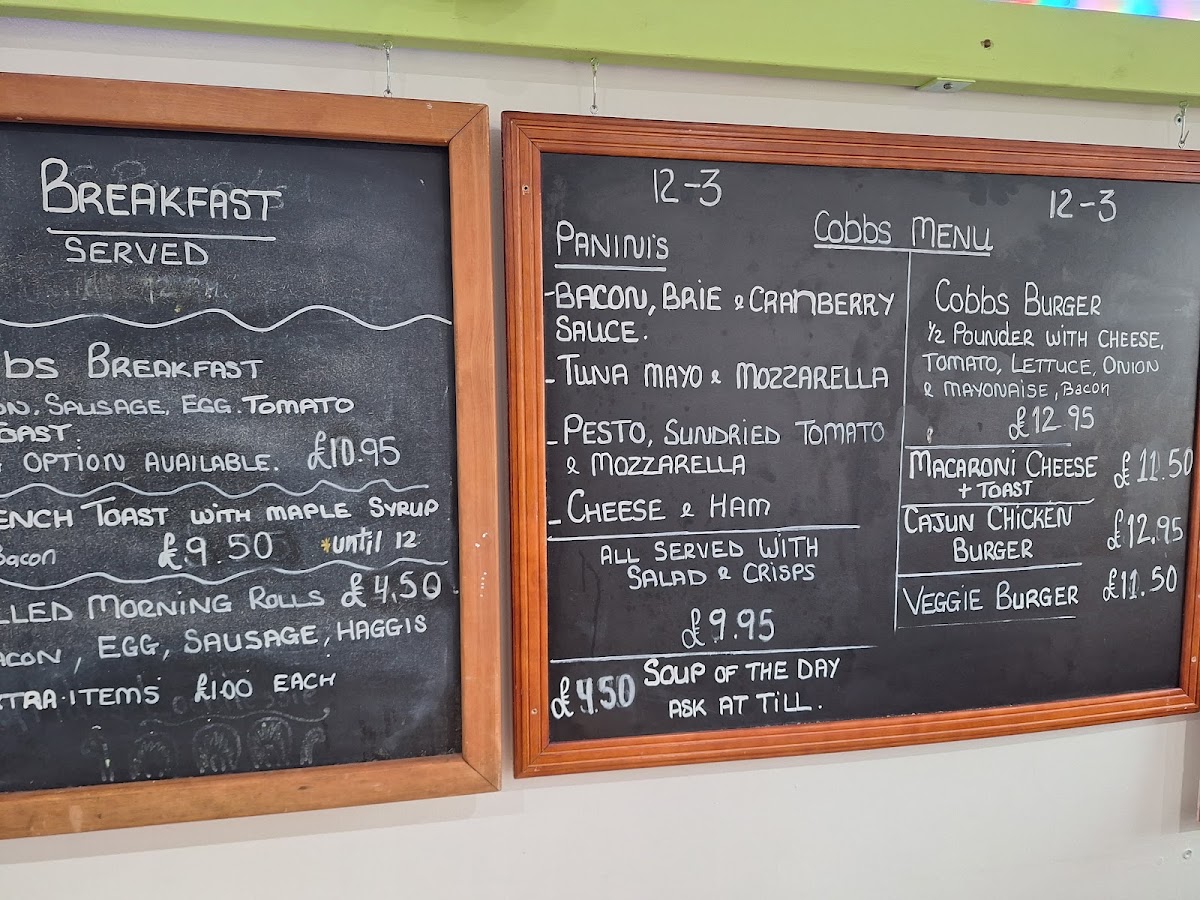 BREAKFAST
SERVED
bs BREAKFAST
ON, SAUSAGE, EGG. TOMATO
OAST.
OPTION AVAILABLE. £10.95
ENCH TOAST WITH MAPLE SYRUP
Bacon £9.50 *until 12
LLED MORNING ROLLS £4.50
ACON, EGG, SAUSAGE, HAGGIS
XTRA·ITEMS £1.00 EACH
12-3
12-3
COBBS MENU
PANINI'S
-BACON, BRIE & CRANBERRY
SAUCE.
- TUNA MAYO & MOZZARELLA
- PESTO, SUNDRIED TOMATO
& MOZZARELLA
- CHEESE & HAM
ALL SERVED WITH
SALAD & CRISPS
£9.95
£4.50 SOUP OF THE DAY
ASK AT TILL.
COBBS BURGER
½ POUNDER WITH CHEESE,
TOMATO, LETTUCE, ONION
& MAYONAISE, Bacon
£12.95
MACARONI CHEESE £11.50
+ TOAST
CAJUN CHICKEN
BURGER £12.95
VEGGIE BURGER £11.50